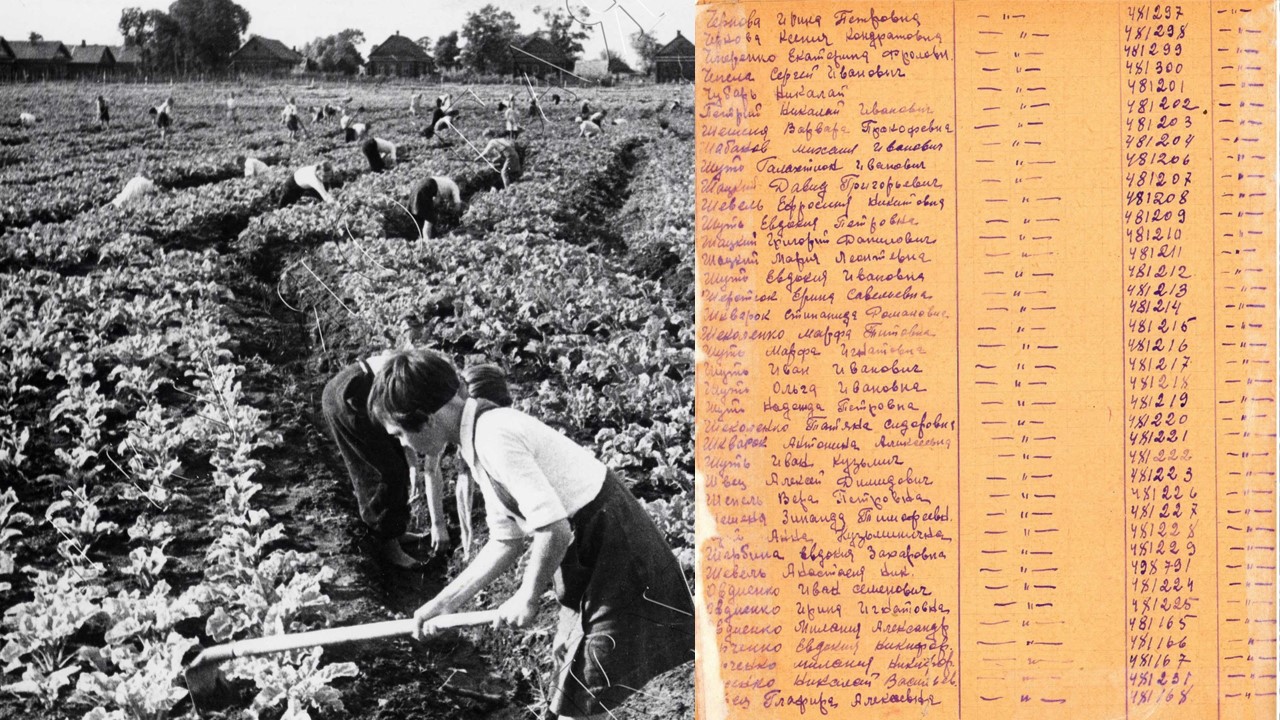 Чернова Ирина Петровна — " — 481297 — " —
Чехова Ксения Кондратовна — " — 481298 — " —
Екатерина Фроловн. — " — 481299 — " —
Сергей Иванович — " — 481300 — " —
Чубарь Николай — " — 481201 — " —
Николай Иванович — " — 481202 — " —
Варвара Прокофьевна — " — 481203 — " —
Шабанов Михаил Иванович — " — 481204 — " —
Шуто Иванович — " — 481206 — " —
Шацкий Давид Григорьевич — " — 481207 — " —
Шевель Ефросиния Никитовна — " — 481208 — " —
Шуть Евдокия Петровна — " — 481209 — " —
Шацкий Григорий Данилович — " — 481210 — " —
Шацкий Мария Леонтьевна — " — 481211 — " —
Шуть Евдокия Ивановна — " — 481212 — " —
Ерина Савельевна — " — 481213 — " —
Шкварок Романовна — " — 481214 — " —
Шеколенко Марфа Титовна — " — 481215 — " —
Шуть Марфа Игнатовна — " — 481216 — " —
Шуть Иван Иванович — " — 481217 — " —
Шуть Ольга Ивановна — " — 481218 — " —
Шуть Надежда Петровна — " — 481219 — " —
Шеколенко Татяна Сидоровна — " — 481220 — " —
Шкварок Антонина Алексеевна — " — 481221 — " —
Шуть Иван Кузьмич — " — 481222 — " —
Швец Алексей Димидович — " — 481223 — " —
Вера Петровна — " — 481226 — " —
Зинаида Тимофеевн. — " — 481227 — " —
Анна Кузьминична — " — 481228 — " —
Евдокия Захаровна — " — 481229 — " —
Шевель Анастасия Ник. — " — 498791 — " —
Овдиенко Иван Семенович — " — 481224 — " —
Овдиенко Ирина Игнатовна — " — 481225 — " —
Милания Александр — " — 481165 — " —
Евдокия Никифор. — " — 481166 — " —
Милания Никифор — " — 481167 — " —
Николай Васильев. — " — 481231 — " —
Глафира Алексеевна — " — 481168 — " —